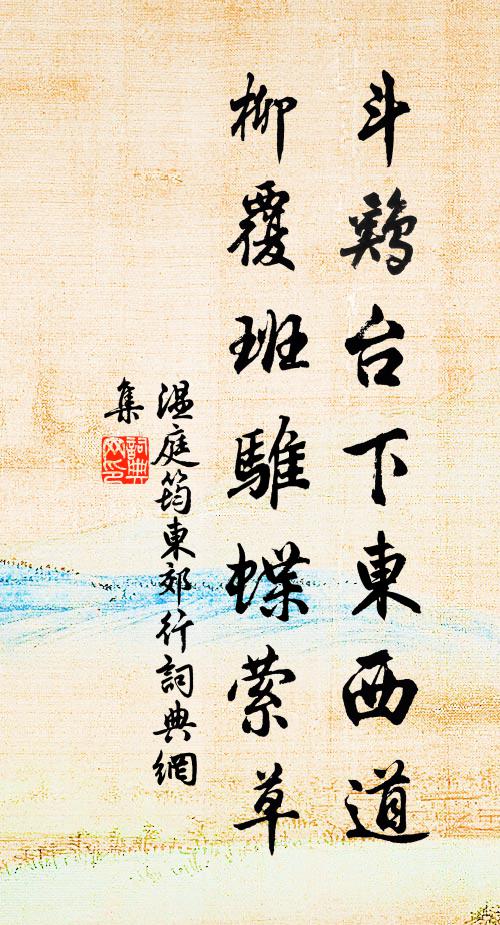 斗鷄台下東西道
柳覆班騅蝶縈草
溫庭筠東郊行詞典網
集
詞典